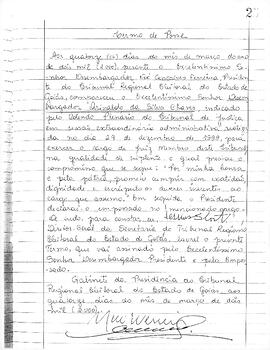 2
Termo de Posse
Aos quatorze (14) dias do mês de março do ano
de dois mil (2000), presente o Excelentíssimo Se-
nhor Desembargador Pereira, Presiden-
te do Tribunal Regional Eleitoral do Estado de
Goiás, compareceu o Excelentíssimo Senhor Desem-
bargador da Silva indicado
pelo Egrégio Plenário do Tribunal de Justiça
em sessão extraordinária administrativa realiza-
da no dia 2 de dezembro de 1999, para
exercer o cargo de Juiz Membro deste Tribunal
na qualidade de suplente o qual prestou o
compromisso que se segue: "Por minha honra
e pela pátria, prometo cumprir com exatidão,
dignidade e escrúpulo os deveres inerentes ao
cargo que assumo." Em seguida o Presidente
declarou o empossado no
De tudo, para constar, eu
Diretor Geral da Secretaria do Tribunal Regional
Eleitoral do Estado de Goiás, lavrei o presente
termo, que vai assinado pelo Excelentíssimo
Senhor Desembargador Presidente e pelo Empos-
sado.
Gabinete da Presidência do Tribunal
Regional Eleitoral do Estado de Goiás, aos
quatorze dias do mês de março de dois
mil (2000).